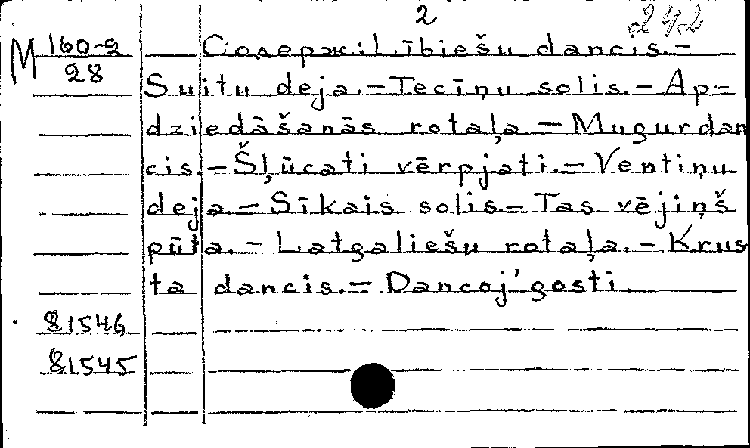 2 242
M 160-2 Содерж: Lībiešu dancis.-
28
Suitu deja.-Tecīņu solis.-Ap-
dziedāšanās rotaļa.-Mugurdan
cis.-Šļūcati vērpjati.-Ventiņu
deja.-Sīkais solis.-Tas vējiņš
pūta.-Latgaliešu rotaļa.-Krus
ta dancis.-Dancoj' gosti
81546
81545